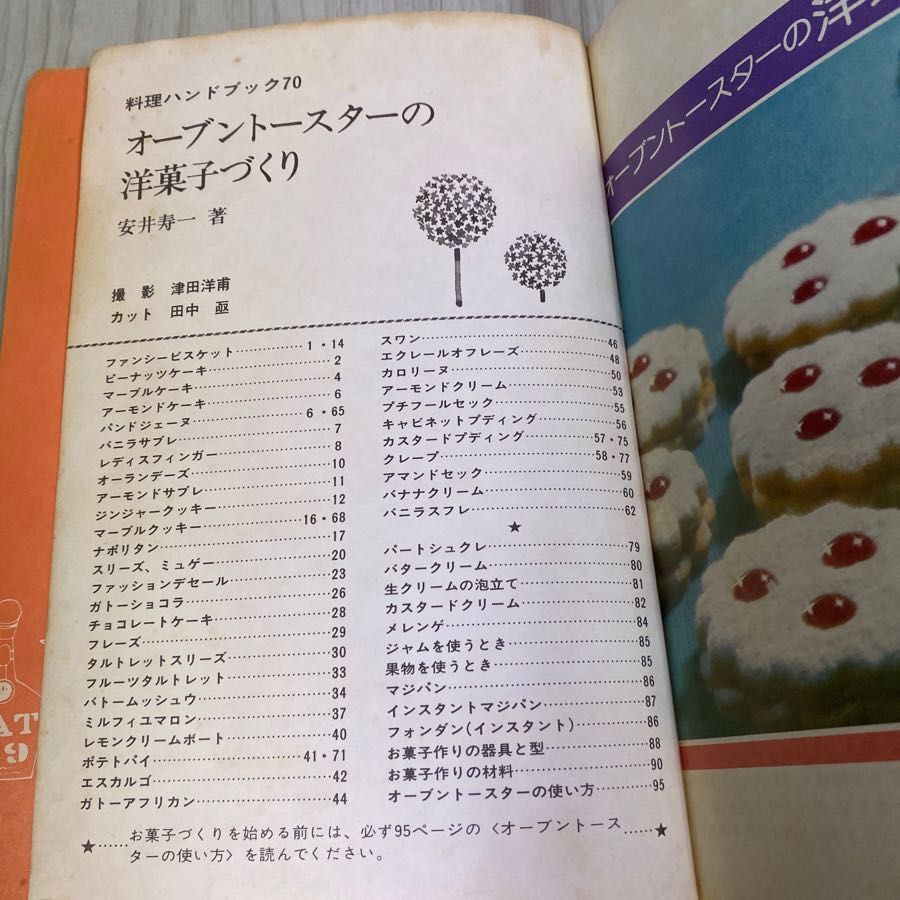 料理ハンドブック70
オーブントースターの
洋菓子づくり
安井寿一 著
撮 影 津田洋甫
カット 田中 亟
ファンシービスケット……………1・14
ピーナッツケーキ……………2
マーブルケーキ……………4
アーモンドケーキ……………6
パンドジェーヌ……………6・65
バニラサブレ……………7
レディスフィンガー……………8
オーランデーズ……………10
アーモンドサブレ……………11
ジンジャークッキー……………12
マーブルクッキー……………16・68
ナポリタン……………17
スリーズ、ミュゲー……………20
ファッションデセール……………23
ガトーショコラ……………26
チョコレートケーキ……………28
フレーズ……………29
タルトレットスリーズ……………30
フルーツタルトレット……………33
バトームッシュウ……………34
ミルフィユマロン……………37
レモンクリームボート……………40
ポテトパイ……………41・71
エスカルゴ……………42
ガトーアフリカン……………44
スワン……………46
エクレールオフレーズ……………48
カロリーヌ……………50
アーモンドクリーム……………53
プチフールセック……………55
キャビネットプディング……………56
カスタードプディング……………57・75
クレープ……………58・77
アマンドセック……………59
バナナクリーム……………60
バニラスフレ……………62
★
パートシュクレ……………79
バタークリーム……………80
生クリームの泡立て……………81
カスタードクリーム……………82
メレンゲ……………84
ジャムを使うとき……………85
果物を使うとき……………85
マジパン……………86
インスタントマジパン……………87
フォンダン(インスタント)……………86
お菓子作りの器具と型……………88
お菓子作りの材料……………90
オーブントースターの使い方……………95
★……お菓子づくりを始める前には、必ず95ページの〈オーブントース……★
ターの使い方〉を読んでください。
オーブントースターの洋
AT
9